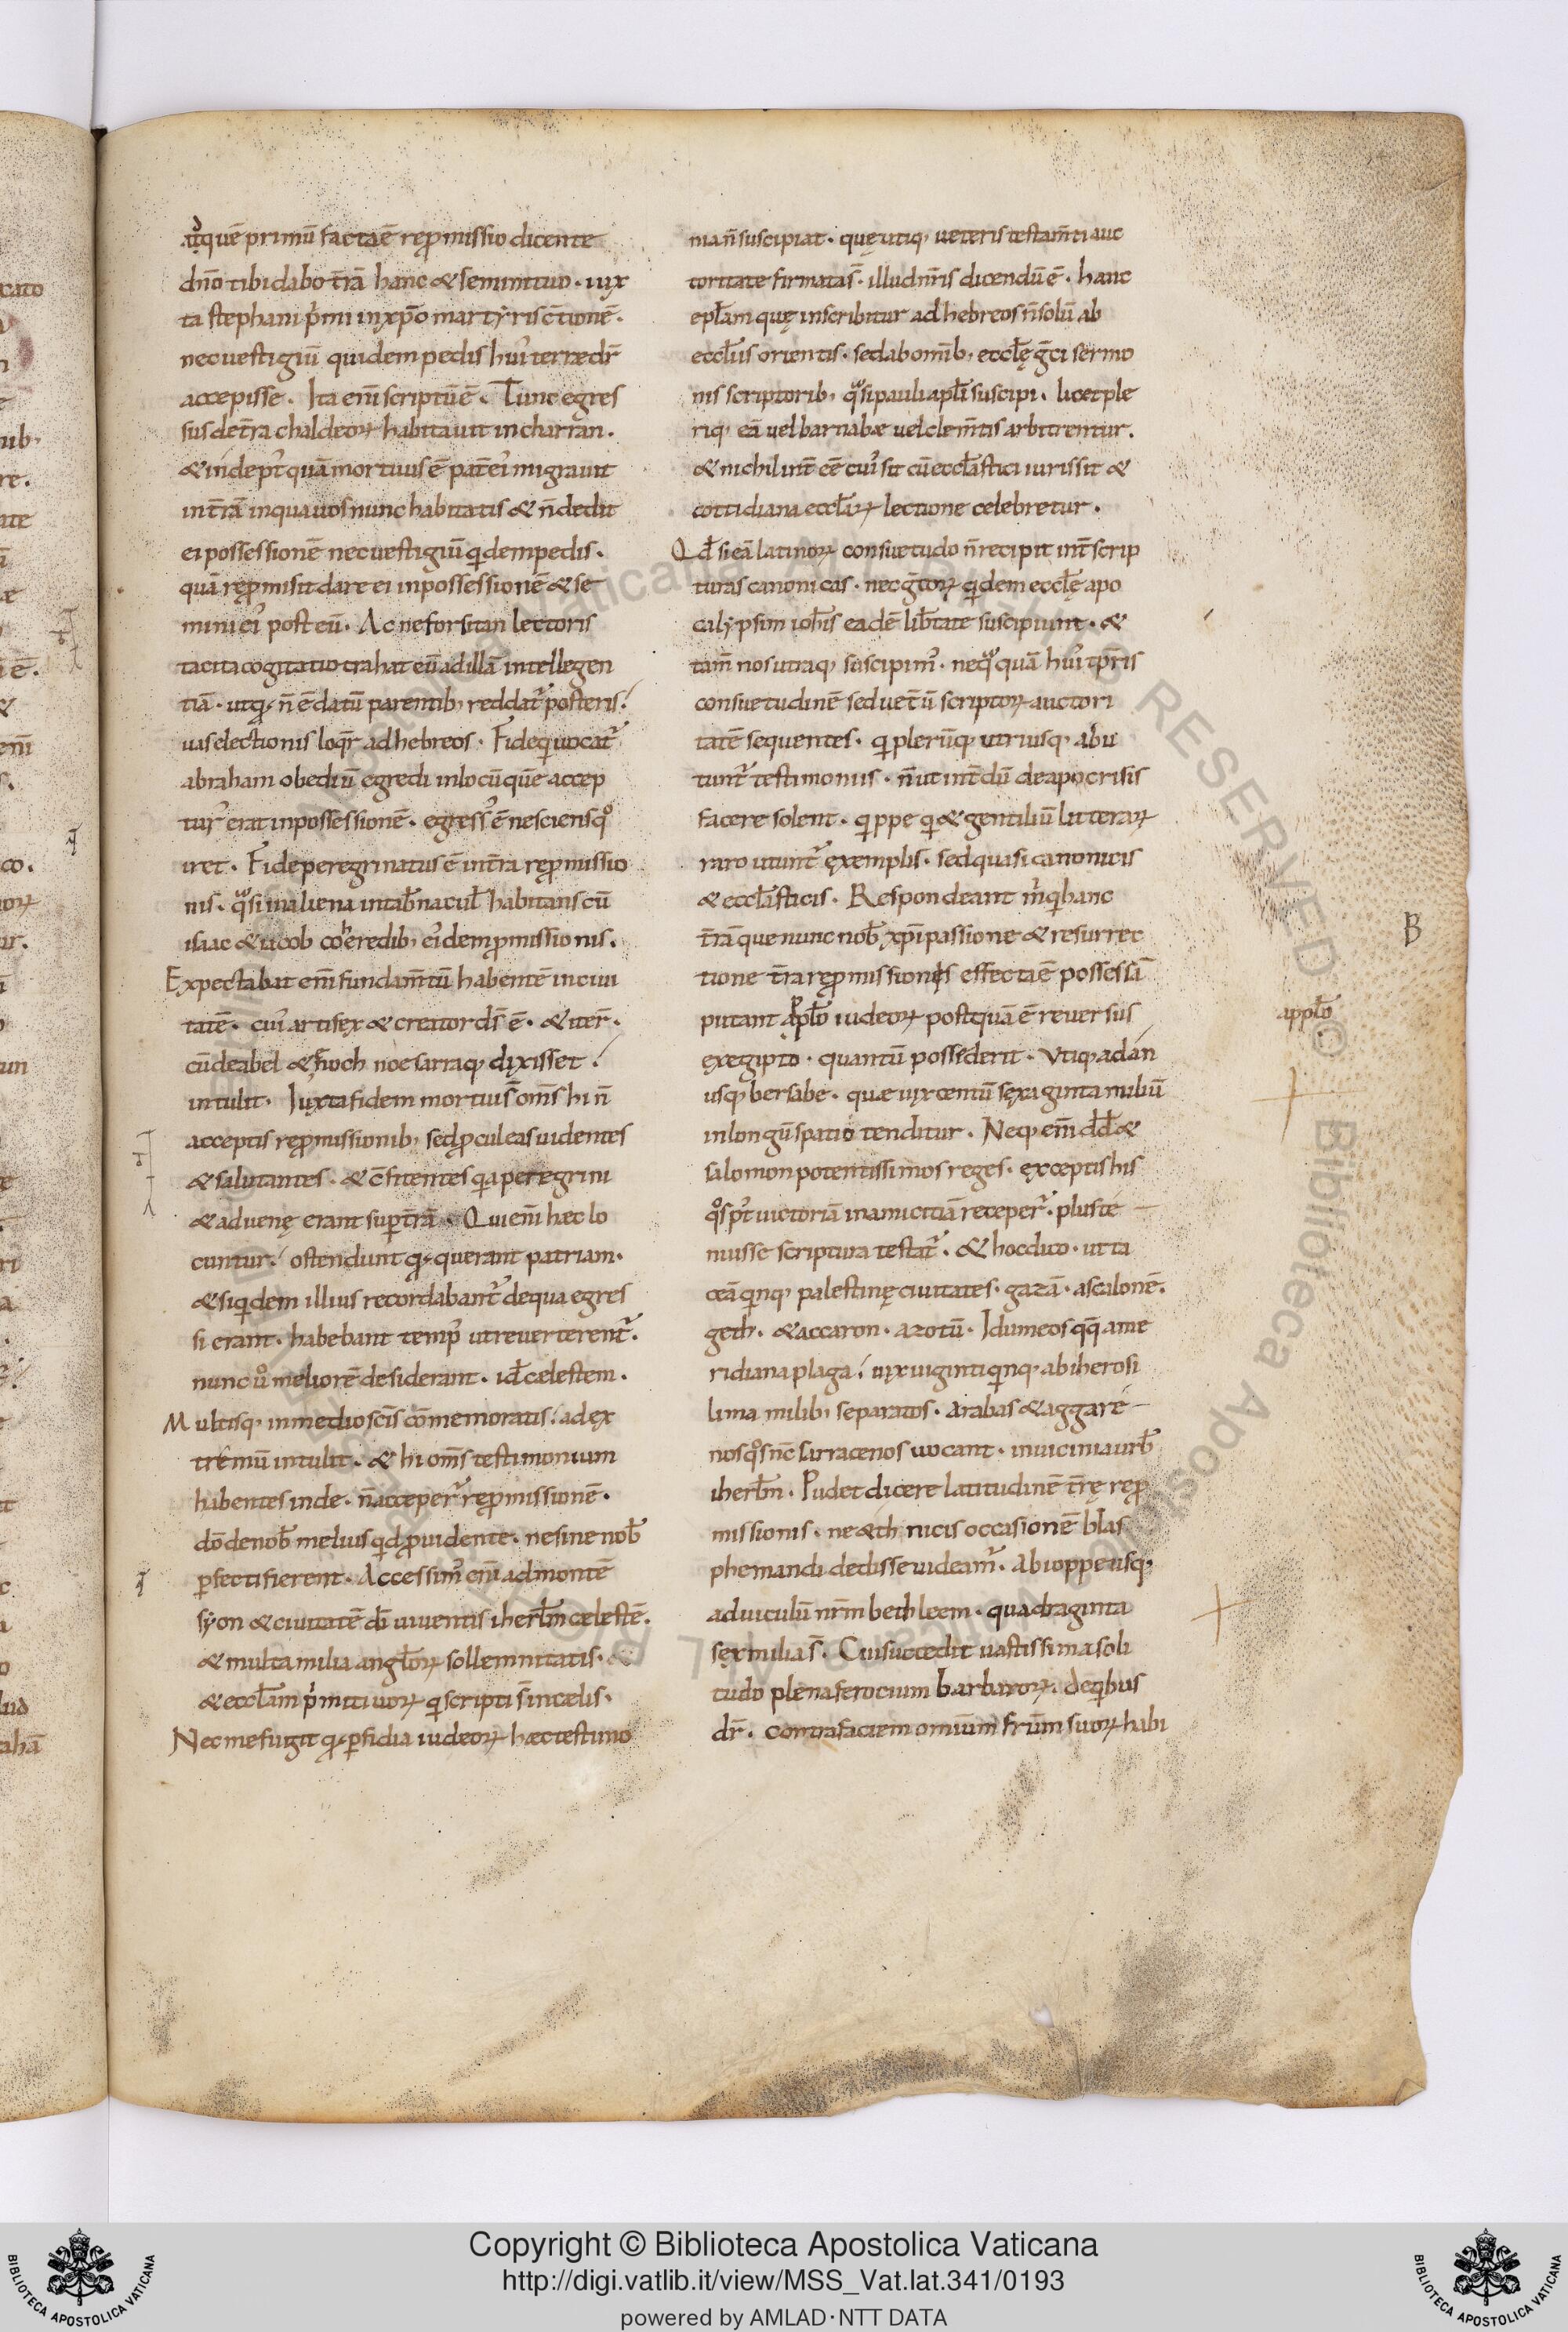 ad quē primū facta ē rep̄missio dicente
dn̄o tibi dabo t̄rā hanc & semini tuo · iux
ta stephani p'mi in xp̄o martyris c̄tionē ·
nec uestigiū quidem pedis hui' terrae dr̄
accepisse · Ita eni scriptū ē · Tunc egres
sus de t̄ra chaldeoꝝ habitauit in charran ·
& inde p't quā mortuus ē pat̄ ei' migrauit
in t̄rā in qua uos nunc habitatis & n̄ dedit
ei possessionē nec uestigiū qidem pedis ·
quā rep̄misit dare ei in possessionē & se
mini ei' post eū · Ac ne forsitan lectoris
tacita cogitatio trahat eū ad illā intellegen
tiā · ut q n̄ ē datū parentib; reddat' posteris ·
uas electionis loq̄r ad hebreos · Fide qi uocat'
abraham obediū egredi in locū quē accep
tur' erat in possessionē · egress' ē nesciens qo
iret · Fide peregrinatus ē in t̄ra rep̄missio
nis · qasi in aliena in tab̄nacul̄ habitans cū
isaac & iacob coheredib; ei'dem p̄missionis ·
Expectabat eni fundam̄tū habentē in ciui
tatē · cui' artifex & creator ds̄ ē · & iter̄ ·
cū de abel & enoch noe sarraq; dixisset ·
intulit · Iuxta fidem mortui s̄ om̄s hi n̄
acceptis rep̄missionib; sed p̄cul eas uidentes
& salutantes · & c̄fitentes qia peregrini
& aduenę erant sup t̄rā · Qui eni haec lo
cuntur · ostendunt q querant patriam ·
& si qidem illius recordabant' de qua egres
si erant · habebant temp' ut reuerterent' ·
nunc uo meliorē desiderant · id ē caelestem ·
Multisq; in medio scīs cōmemoratis · ad ex
tremū intulit · & hi om̄s testimonium
habentes inde · n̄ acceper' rep̄missionē ·
dō de nob̄ melius qid p̄uidente · ne sine nob̄
pfecti fierent · Accessim' eni ad montē
syon & ciuitatē dī uiuentis iherl̄m celestē ·
& multa milia angl̄oꝝ sollemnitatis ·
& eccl̄am p'mitiuoꝝ qi scripti s̄ in caelis ·
Nec me fugit q pfidia iudeoꝝ haec testimo
nia n̄ suscipiat · quę utiq; ueteris testam̄ti auc
toritate firmata s̄ · illud nr̄is dicendū ē · hanc
epl̄am quę inscribitur ad hebreos n̄ solū ab
eccl̄iis orientis · sed ab omīb; eccl̄ę gc̄i sermo
nis scriptorib; qasi pauli apl̄i suscipi · licet ple
riq; eā uel barnabae uel clem̄tis arbitrentur ·
& nichil int̄ cē cui' sit cū eccl̄astici iuris sit &
cottidiana eccl̄iaꝝ lectione celebretur ·
Qd̄ si eā latinoꝝ consuetudo n̄ recipit int̄ scrip
turas canonicas · nec gc̄oꝝ qidem eccl̄ę apo
calypsim ioh̄is eadē lib̄tate suscipiunt · &
tam̄ nos utraq; suscipim' · neqaquā hui' tp̄ris
consuetudinē sed uet̄ū scriptoꝝ auctori
tatē sequentes · qi plerūq; utriusq; abu
tunt' testimoniis · n̄ ut int̄dū de apocrisis
facere solent · qippe qi & gentiliū litteraꝝ
raro utunt' exemplis · sed quasi canonicis
& eccl̄asticis · Respondeant m' qi hanc
t̄rā que nunc nob̄ xpī passione & resurrec
tione t̄ra rep̄missionis effecta ē possessā
putant a pplō iudeoꝝ postquā ē reuersus
ex egipto · quantū possederit · Vtiq; a dan
usq; bersabe · quae uix centū sexaginta miliū
in longū spatio tenditur · Neq; eni dd̄ &
salomon potentissimos reges · exceptis his
qos p't uictoriā in amicitiā receper' · plus te
nuisse scriptura testat' · & hoc dico · ut ta
ceā qinq; palestinę ciuitates · gazā · ascalonē ·
geth · & accaron · azotū · Idumeos qq̄ a me
ridiana plaga · uix uiginti qinq; ab iherosi
lima milib; separatos · arabas & aggare
nos qos nc̄ sarracenos uocant · in uicinia urb̄
iherl̄m · Pudet dicere latitudinē t̄rę rep̄
missionis · ne & thnicis occasionē blas
phemandi dedisse uideam' · Ab ioppe usq;
ad uiculū nr̄m bethleem · quadraginta
sex milia s̄ · Cui succedit uastissima soli
tudo plena ferocium barbaroꝝ · de qibus
dr̄ · contra faciem omnium fr̄um suoꝝ habi
B
applō
Copyright © Biblioteca Apostolica Vaticana
http://digi.vatlib.it/view/MSS_Vat.lat.341/0193
powered by AMLAD·NTT DATA
BIBLIOTECA APOSTOLICA VATICANA
BIBLIOTECA APOSTOLICA VATICANA